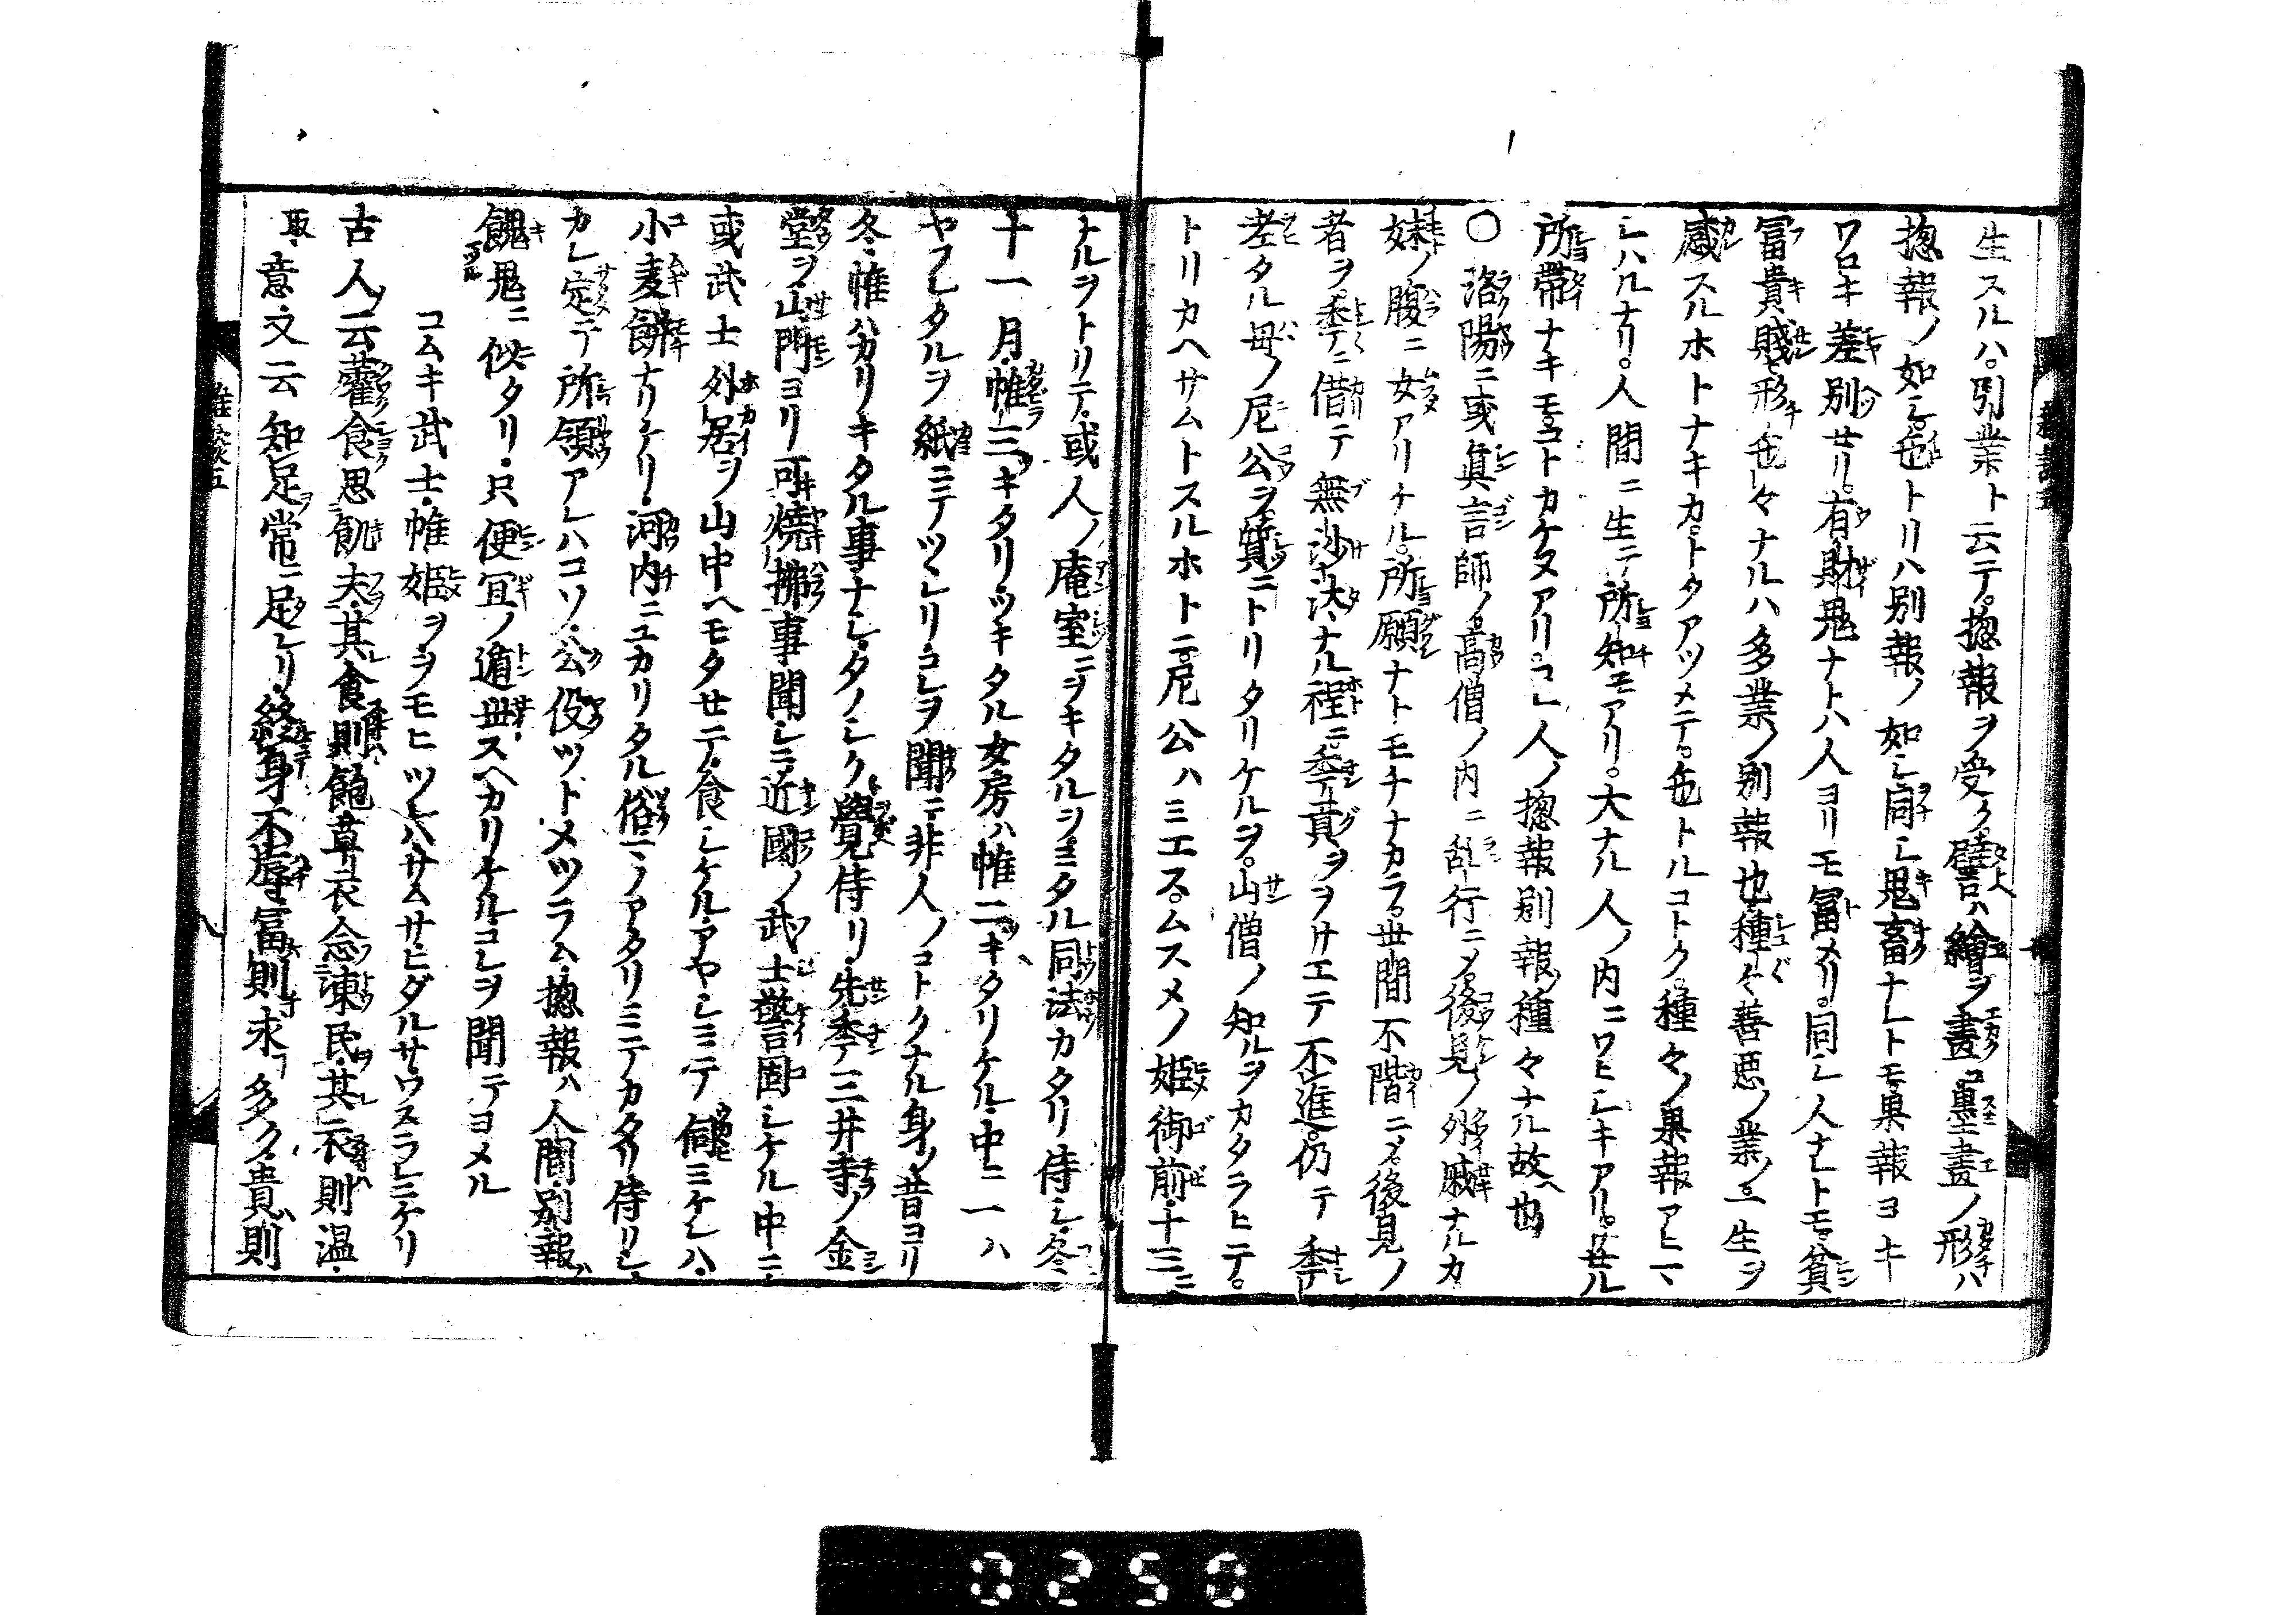 生スルハ。引業ト云テ。揔報ヲ受ク。譬ハ繪ヲ畫ニ墨畫ノ形ハ
揔報ノ如シ。色トリハ別報ノ如シ同シ鬼畜ナレトモ果報ヨキ
ワロキ差別セリ。有財鬼ナトハ人ヨリモ冨メリ。同シ人ナレトモ。貧
冨貴賤モ形チ色々ナルハ多業ノ別報也。種々善悪ノ業ノ一生ヲ
感スルホトナキカ。トクアツメテ。色トルコトク。種々ノ果報アヒ
シハルナリ。人間ニ生テ所知モアリ。大ナル人ノ内ニワヒシキアリ。サル
所帶ナキモコトカケヌアリ。コレ人ノ揔報別報種々ナル故ヘ也
〇洛陽ニ或眞言師ノ高僧ノ内ニ乱行ニメ後見ノ外戚ナルカ
妹ノ腹ニ女アリケル。所願ナトモナナカラ。世間不階ニメ。後見ノ
者ヲ。季ニ借テ無沙汰ナル程ニ。季貢ヲヲサエテ不進。仍テ季
老タル母ノ尼公ヲ。質ニトリタリケルヲ。山僧ノ知ルヲカタラヒニテ。
トリカヘサムトスルホトニ尼公ハミエス。ムスメノ姫御前十三ニ
ナルヲトリテ或人ノ庵室ニヲキタルヲミタル同法カタリ侍シ。冬
十一月帷三キタリ。ツキタル女房ハ帷二キタリケル。中ニ一ハ
ヤフレタルヲ紙ニテツヽレリ。コレヲ聞ニ非人ノコトクナル身ノ昔ヨリ
冬帷ハカリキタル事ナシ。タノシク覺侍リ。先季三井寺ノ金
堂ヲ山門ヨリ可燒拂事聞シニ近國ノ武士警固シケル中ニ
或武士外居ヲ山中ヘモタセテ食シケルアヤシミテ伺ミケレハ
小麦餅ナリケリ。河内ニユカリタル俗ノアタリミテカタリ侍リシ
カレ定テ所領アレハコソ公役ツトメツラム。揔報ハ人間別報
餓鬼ニ似タリ。只便冝ノ遁世スヘカリケル。コレヲ聞テヨメル
コムキ武士帷姫ヲヲモヒツレハサムサヒダルサワスラレニケリ
古人云藿食思飢夫其食則飽草衣念凍民其衣則温
取意文云知足常ニ足レリ終身不辱冨則求多ク貴則
雜談五